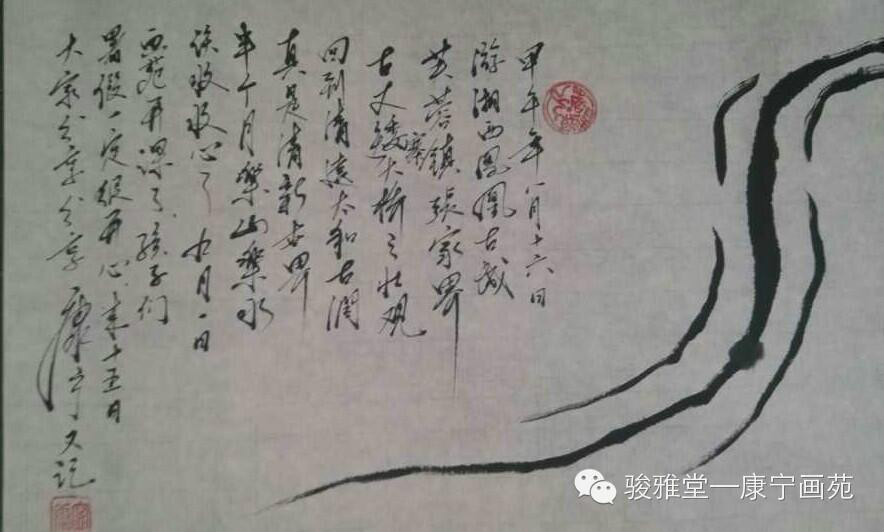 甲午年八月十六日
游湘西凤凰古城
芙蓉镇张家界
古丈矮寨大桥之壮观
回到清远太和古洞
真是清新世界
半个月乐山乐水
该收收心了九月一日
画苑开课了孩子们
暑假一定很开心来十五日
大家分享分享康宁又记
骏雅堂—康宁画苑